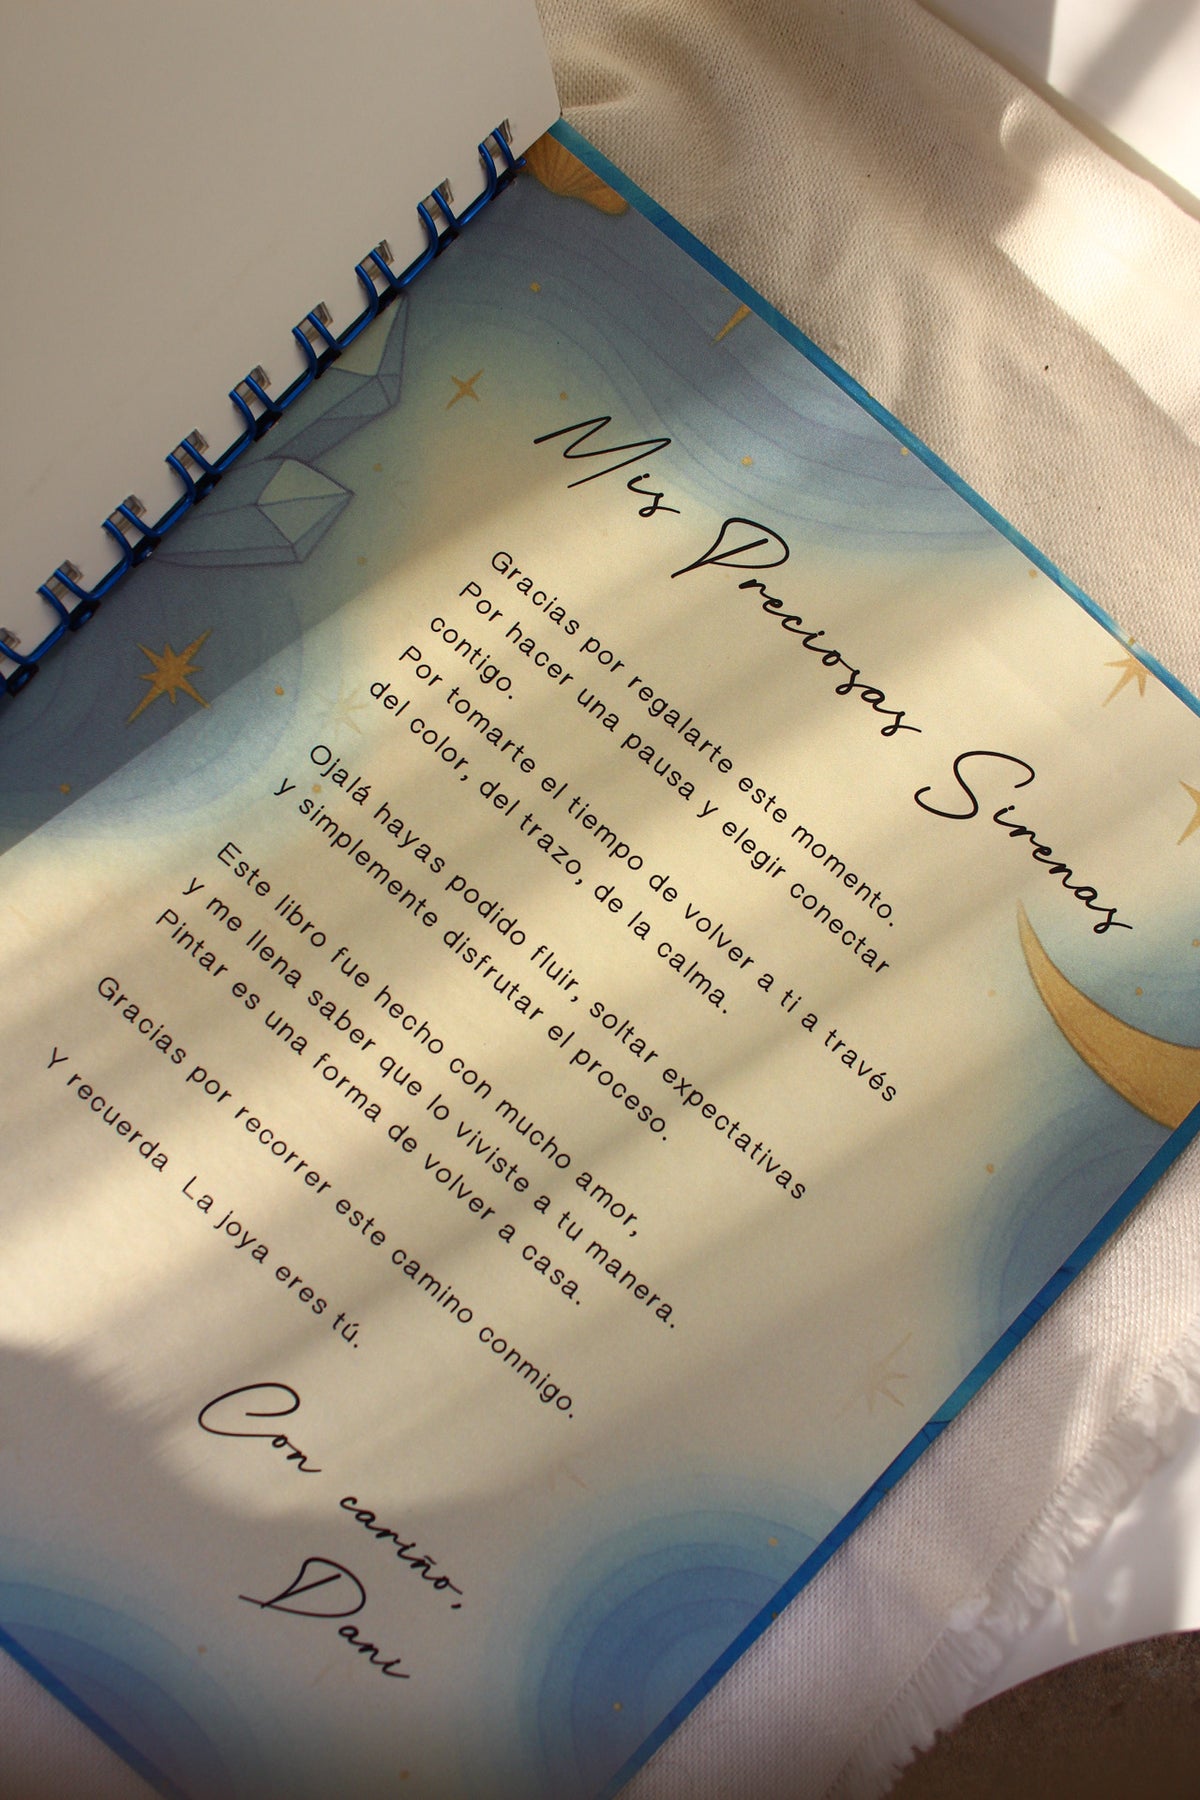 Mis Preciosas Sirenas
Gracias por regalarte este momento.
Por hacer una pausa y elegir conectar
contigo.
Por tomarte el tiempo de volver a ti a través
del color, del trazo, de la calma.
Ojalá hayas podido fluir, soltar expectativas
y simplemente disfrutar el proceso.
Este libro fue hecho con mucho amor,
y me llena saber que lo viviste a tu manera.
Pintar es una forma de volver a casa.
Gracias por recorrer este camino conmigo.
Y recuerda La joya eres tú.
Con cariño,
Dani